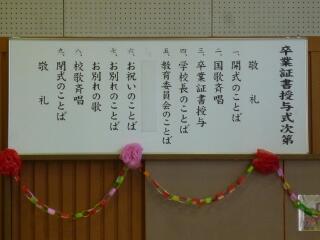 卒業証書授与式次第
敬礼
一、開式のことば
二、国歌斉唱
三、卒業証書授与
四、学校長のことば
五、教育委員会のことば
六、お祝いのことば
七、お別れのことば
お別れの歌
八、校歌斉唱
九、閉式のことば
敬礼